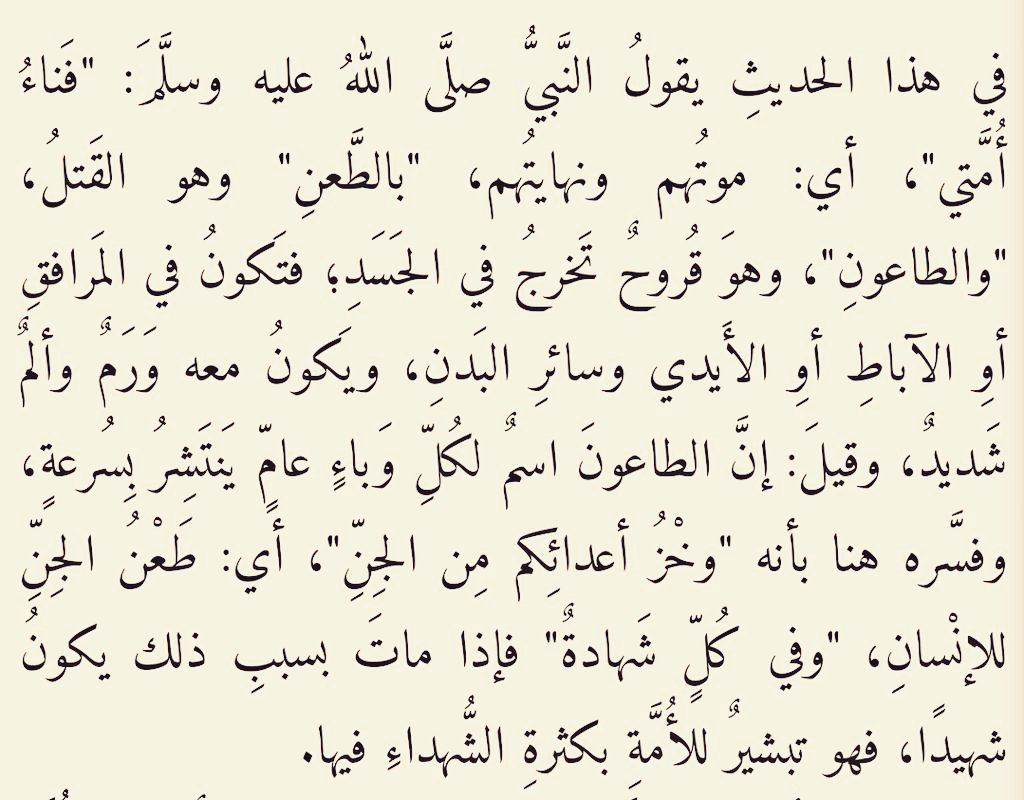 في هذا الحديثِ يقولُ النَّبيُّ صلَّى اللهُ عليه وسلَّمَ: "فَناءُ
أُمَّتي"، أي: موتُهم ونهايتُهم، "بالطَّعنِ" وهو القَتلُ،
"والطاعونِ"، وهوَ قُروحٌ تَخرجُ في الجَسَدِ؛ فتَكونُ في المَرافقِ
أوِ الآباطِ أوِ الأَيدي وسائرِ البَدنِ، ويَكونُ معه وَرَمٌ وألمٌ
شَديدٌ، وقيلَ: إنَّ الطاعونَ اسمٌ لكُلِّ وَباءٍ عامٍّ يَنتَشِرُ بِسُرعةٍ،
وفسَّره هنا بأنه "وخْزُ أعدائِكم مِن الجِنِّ"، أي: طَعْنُ الجِنِّ
للإنْسانِ، "وفي كُلٍّ شَهادةٌ" فإذا ماتَ بسببِ ذلك يكونُ
شهيدًا، فهو تبشيرٌ للأُمَّةِ بكثرةِ الشُّهداءِ فيها.